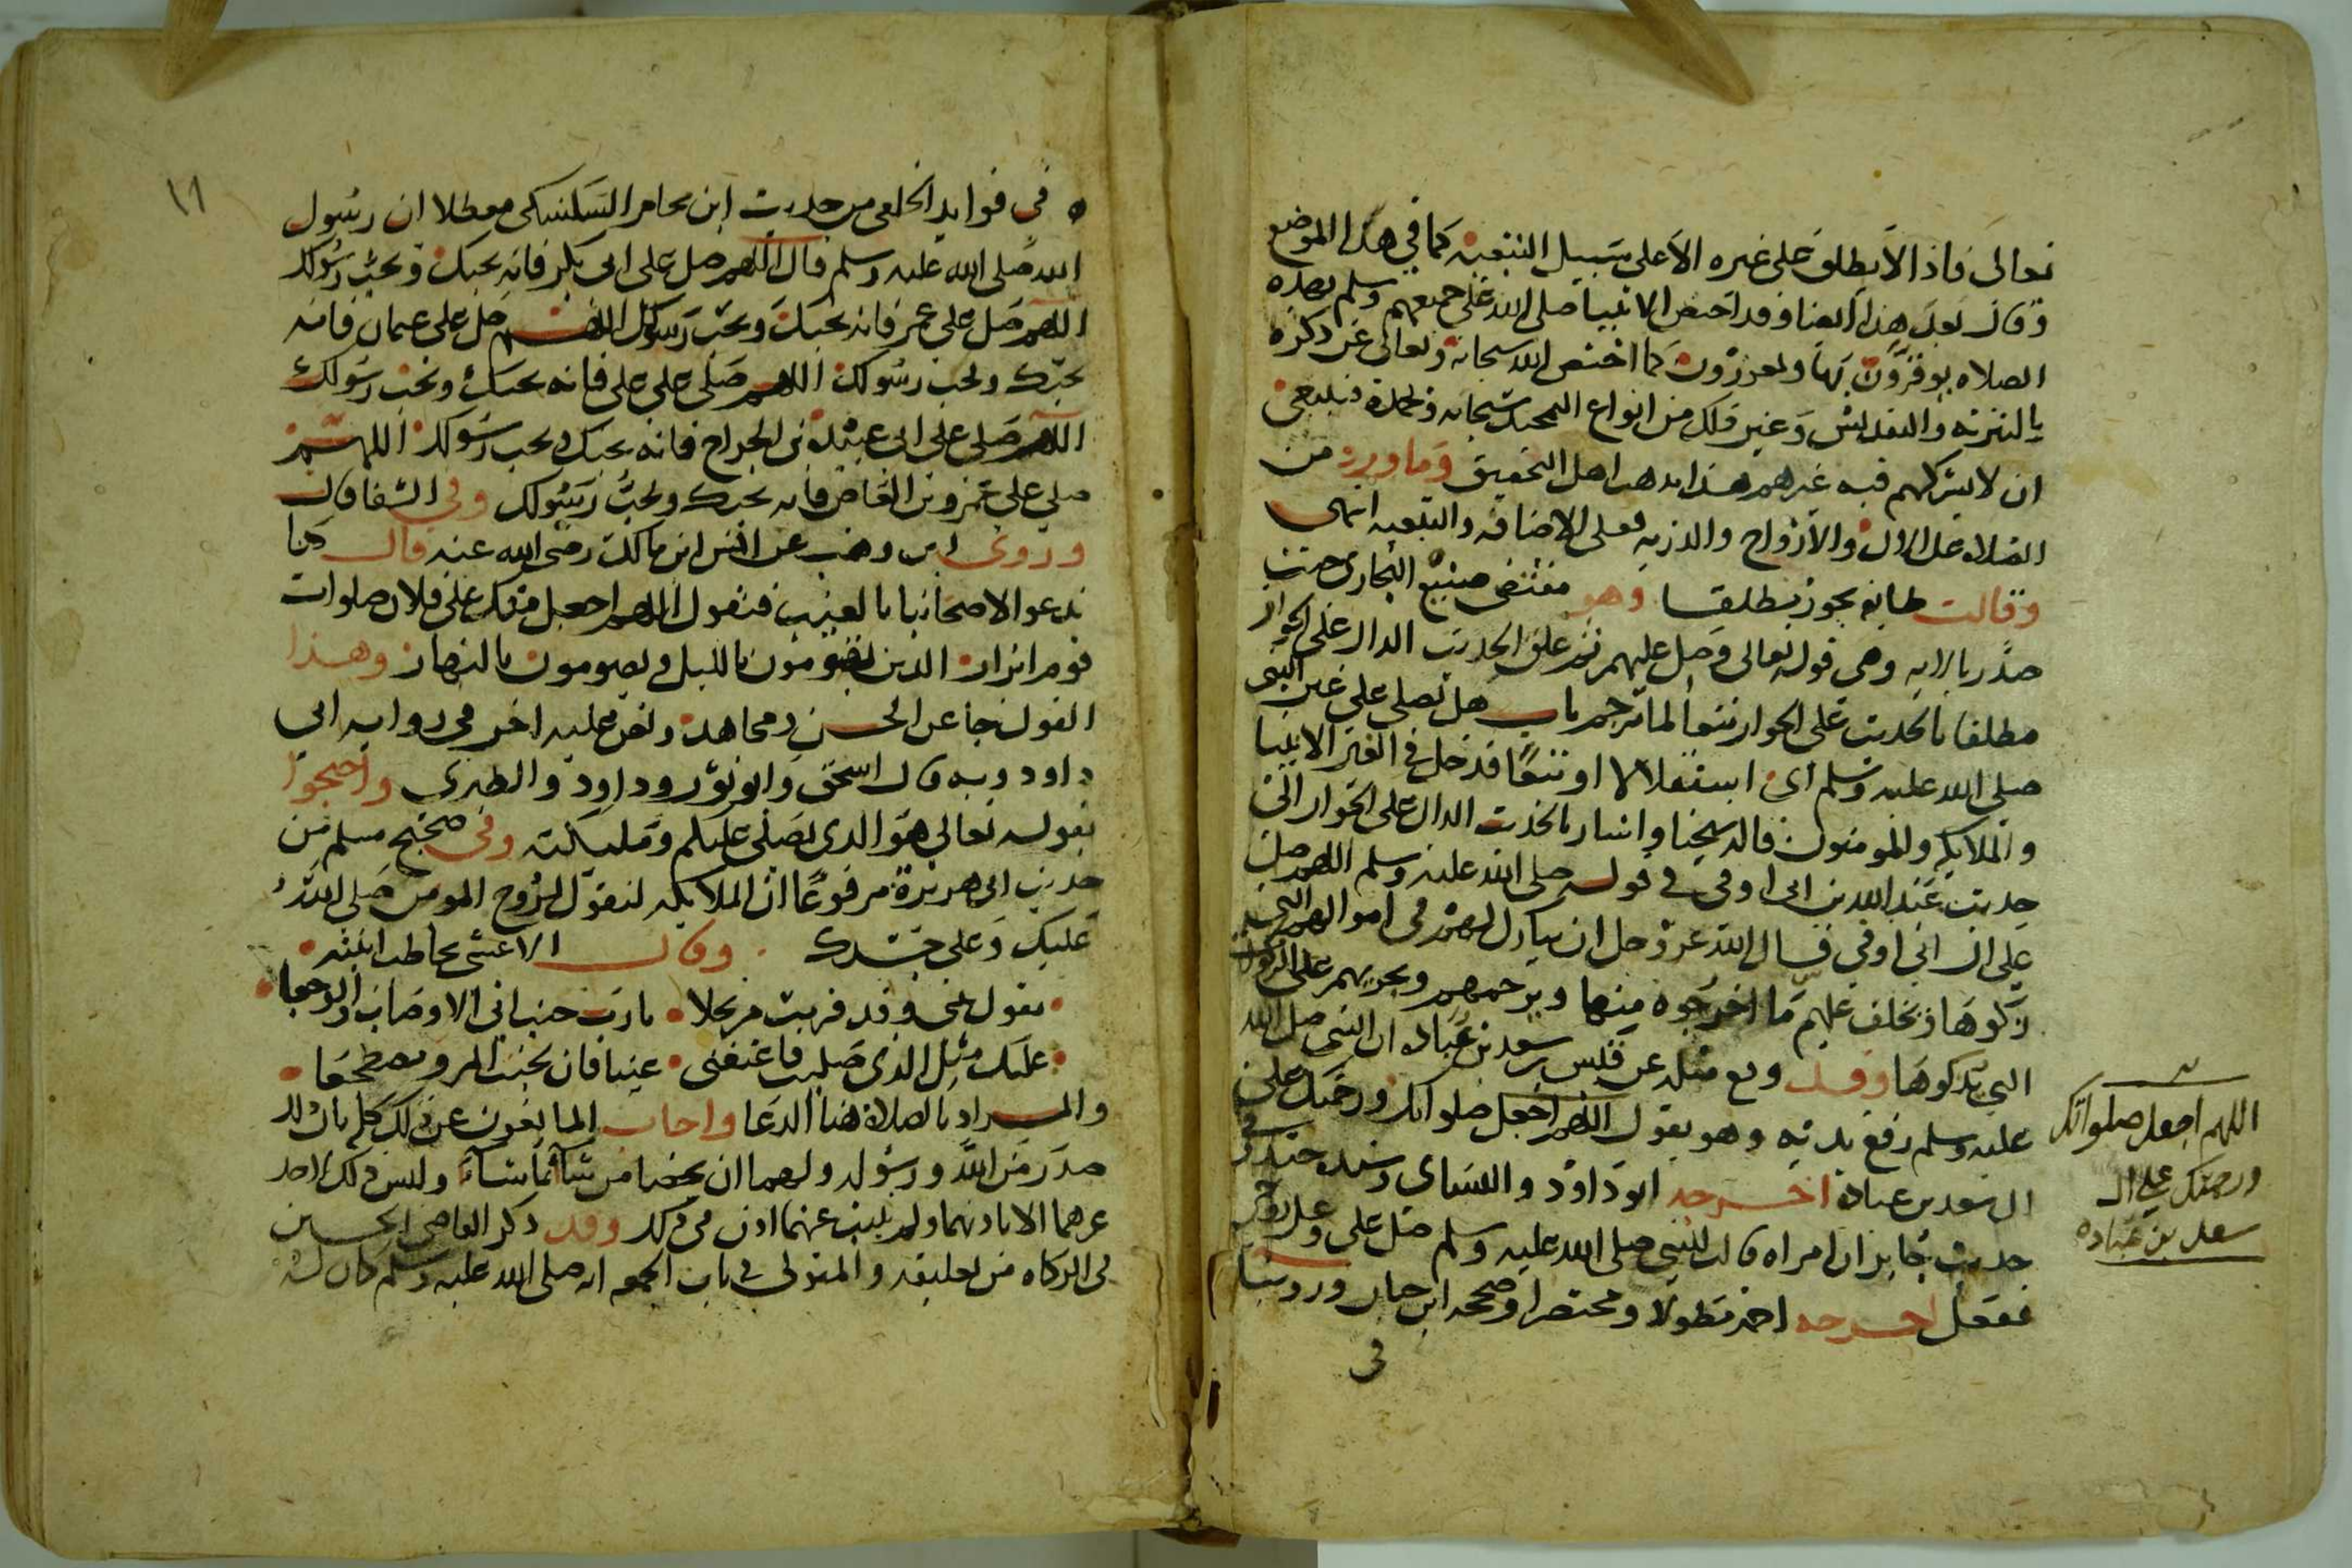 تعالى فاذا لا يطلق على غيره الا على سبيل التبعيه كما في هذا الموضع
وقال بعد هذا ايضا وقد اختص الانبيا صلى الله على جميعهم وسلم بهذه
الصلاه يوقرون بها ويعززون كما اختص الله سبحانه وتعالى عن ذكره
بالتنزيه والتقديس وغير ذلك من انواع التمجيد سبحانه وبحمده فينبغى
ان لا يشركهم فيه غيرهم هذا مذهب اهل التحقيق وما ورد من
الصلاه على الال والازواج والذريه فعلى الاضافه والتبعيه انتهى
وقالت طايفه يجوز مطلقا وهو مقتضى صنيع البخارى حيث
صدر بالايه وهى قوله تعالى وصل عليهم ثم علق الحديث الدال على الجواز
مطلقا بالحديث على الجواز تبعا لما ترجم باب هل يصلى على غير النبى
صلى الله عليه وسلم اى استقلالا او تبعا فدخل في الغير الانبيا
والملايكه والمومنون قاله شيخنا واشار بالحديث الدال على الجواز الى
حديث عبد الله بن ابى اوفى في قوله صلى الله عليه وسلم اللهم صل
على ال ابى اوفى فسال الله عز وجل ان يبارك لهم فى اموالهم التى
زكوها ويخلف عليهم ما اخرجوه منها ويرحمهم ويجزيهم على الزكوات
التى يزكوها وقد وقع مثله عن قيس بن سعد بن عباده ان النبى صلى الله
عليه وسلم رفع يديه وهو يقول اللهم اجعل صلواتك ورحمتك على
ال سعد بن عباده اخرجه ابو داود والنساى وسنده جيد وفى
حديث جابر ان امراه قالت للنبى صلى الله عليه وسلم صل على وعلى زوجى
ففعل اخرجه احمد مطولا ومختصرا وصححه ابن حبان وروينا
فى
اللهم اجعل صلواتك
ورحمتك على ال
سعد بن عباده
١٦
فى فوايد الخلعى من حديث ابن يخامر السكسكى معطلا ان رسول
الله صلى الله عليه وسلم قال اللهم صل على ابى بكر فانه يحبك ويحب رسولك
اللهم صل على عمر فانه يحبك ويحب رسولك اللهم صل على عثمان فانه
يحبك ويحب رسولك اللهم صلى على على فانه يحبك ويحب رسولك
اللهم صلى على ابى عبيدة بن الجراح فانه يحبك ويحب رسولك اللهم
صلى على عمرو بن العاص فانه يحبك ويحب رسولك وفى الشفا قال
وروى ابن وهب عن انس ابن مالك رضى الله عنه قال كنا
ندعو الاصحابنا بالغيب فنقول اللهم اجعل منك على فلان صلوات
قوم ابرار الذين يقومون بالليل ويصومون بالنهار وهذا
القول جا عن الحسن ومجاهد ونص عليه احمد فى روايه ابى
داود وبه قال اسحق وابو ثور وداود والطبرى واحتجوا
بقوله تعالى هو الذى يصلى عليكم وملايكته وفى صحيح مسلم من
حديث ابى هريرة مرفوعا ان الملايكه لتقول لروح المومن صلى الله
عليك وعلى جسدك وقال الاعشى يخاطب ابنته
تقول بنتى وقد قربت مرتحلا يا رب جنب ابى الاوصاب والوجعا
عليك مثل الذى صليت فاغتمضى عينا فان بجنب المر مضطجعا
والمراد بالصلاة هنا الدعا واجاب المانعون عن ذلك كله بان ذلك
صدر من الله ورسوله ولهما ان يخصا من شاآ بما شاآ وليس ذلك لاحد
غيرهما الا باذنهما ولم يثبت عنهما اذن فى ذلك وقد ذكر القاضى الحسين
فى الزكاه من تعليقه والمتولى في باب الجمعه انه صلى الله عليه وسلم كان له